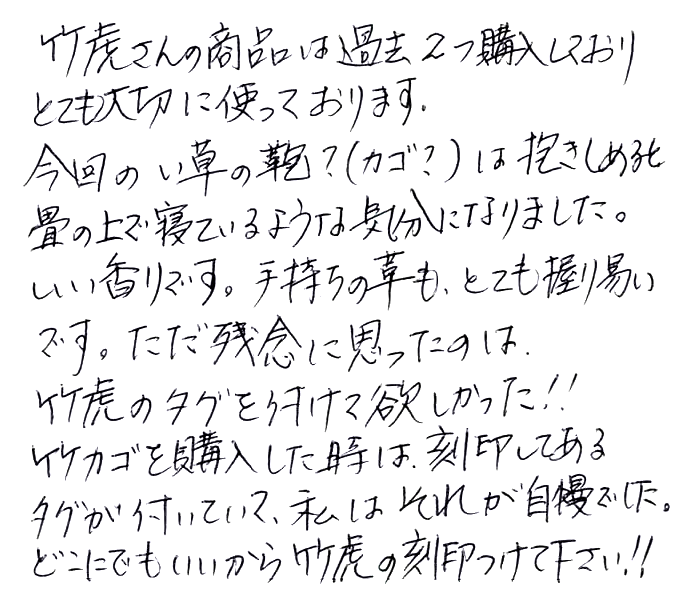 竹虎さんの商品は過去2つ購入しており
とても大切に使っております.
今回のい草の鞄?(カゴ?)は抱きしめると
畳の上で寝ているような気分になりました。
いい香りです。手持ちの革も、とても握り易い
です。ただ残念に思ったのは.
竹虎のタグを付けて欲しかった!!
竹カゴを購入した時は、刻印してある
タグが付いていて、私はそれが自慢でした。
どこにでもいいから竹虎の刻印つけて下さい!!